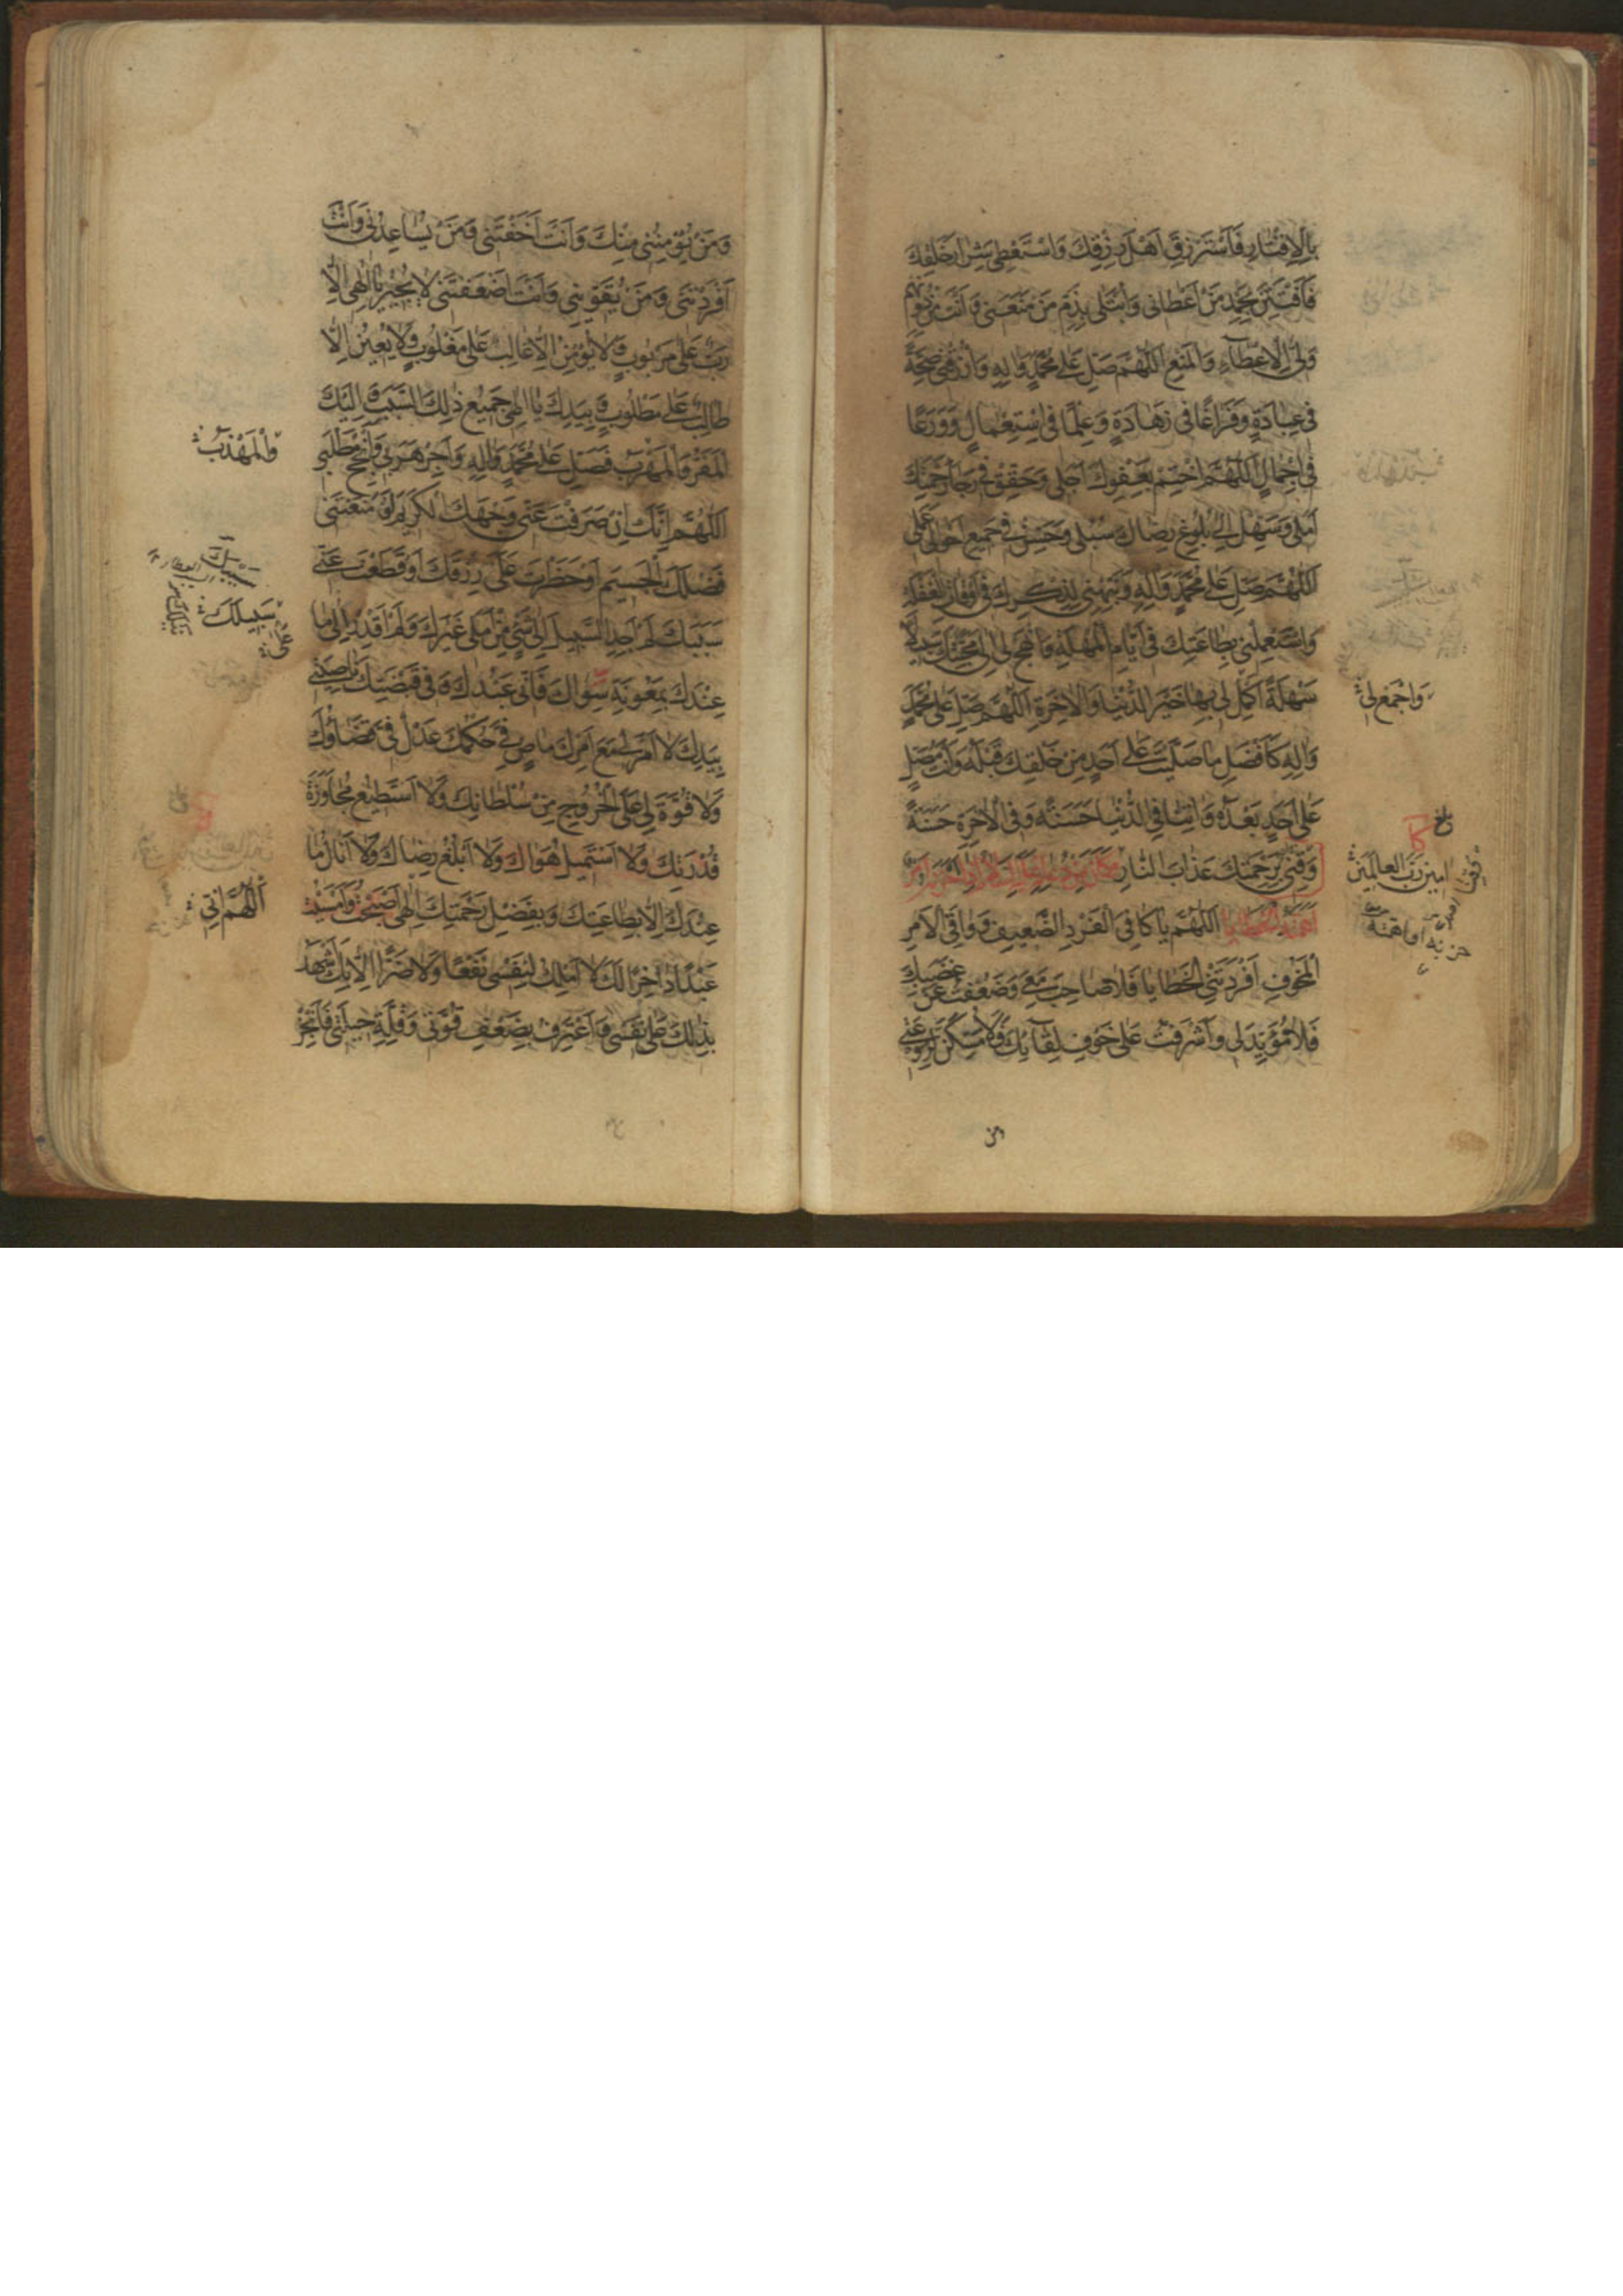 بِالْاِقْتارِ فَاَسْتَرْزِقَ اَهْلَ رِزْقِكَ وَاَسْتَعْطِيَ شِرارَ خَلْقِكَ
فَاَفْتَتِنَ بِحَمْدِ مَنْ اَعْطاني وَاُبْتَلى بِذَمِّ مَنْ مَنَعَني وَاَنْتَ مِنْ دُونِهِمْ
وَلِيُّ الْاِعْطآءِ وَالْمَنْعِ اَللّهُمَّ صَلِّ عَلى مُحَمَّدٍ وَالِهِ وَارْزُقْني صِحَّةً
في عِبادَةٍ وَفَراغًا في زَهادَةٍ وَعِلْمًا فِي اسْتِعْمالٍ وَوَرَعًا
في اِجْمالٍ اَللّهُمَّ اخْتِمْ بِعَفْوِكَ اَجَلي وَحَقِّقْ في رَجآءِ رَحْمَتِكَ
اَمَلي وَسَهِّلْ اِلى بُلُوغِ رِضاكَ سُبُلي وَحَسِّنْ في جَميعِ اَحْوالي عَمَلي
اَللّهُمَّ صَلِّ عَلى مُحَمَّدٍ وَالِهِ وَنَبِّهْني لِذِكْرِكَ في اَوْقاتِ الْغَفْلَةِ
وَاسْتَعْمِلْني بِطاعَتِكَ في اَيّامِ الْمُهْلَةِ وَانْهَجْ لي اِلى مَحَبَّتِكَ سَبيلًا
سَهْلَةً اَكْمِلْ لي بِها خَيْرَ الدُّنْيا وَالْاخِرَةِ اَللّهُمَّ صَلِّ عَلى مُحَمَّدٍ
وَالِهِ كَاَفْضَلِ ما صَلَّيْتَ عَلى اَحَدٍ مِنْ خَلْقِكَ قَبْلَهُ وَاَنْتَ مُصَلٍّ
عَلى اَحَدٍ بَعْدَهُ وَاتِنا فِي الدُّنْيا حَسَنَةً وَفِي الْاخِرَةِ حَسَنَةً
وَقِني بِرَحْمَتِكَ عَذابَ النّارِ
اَللّهُمَّ يا كافِيَ الْفَرْدِ الضَّعيفِ وَواقِيَ الْاَمْرِ
الْمَخُوفِ اَفْرَدَتْنِي الْخَطايا فَلا صاحِبَ مَعي وَضَعُفْتُ عَنْ غَضَبِكَ
فَلا مُؤَيِّدَ لي وَاَشْرَفْتُ عَلى خَوْفِ لِقآئِكَ وَلا مُسَكِّنَ لِرَوْعَتي
وَاجْمَعْ لي
امين رَبَّ الْعالَمينَ
وَمَنْ يُؤْمِنُني مِنْكَ وَاَنْتَ اَخَفْتَني وَمَنْ يُساعِدُني وَاَنْتَ
اَفْرَدْتَني وَمَنْ يُقَوّيني وَاَنْتَ اَضْعَفْتَني لا يُجيرُ يا اِلهي اِلّا
رَبٌّ عَلى مَرْبُوبٍ وَلا يُؤْمِنُ اِلّا غالِبٌ عَلى مَغْلُوبٍ وَلا يُعينُ اِلّا
طالِبٌ عَلى مَطْلُوبٍ وَبِيَدِكَ يا اِلهي جَميعُ ذلِكَ السَّبَبِ وَاِلَيْكَ
الْمَفَرُّ وَالْمَهْرَبُ فَصَلِّ عَلى مُحَمَّدٍ وَالِهِ وَاَجِرْ هَرَبي وَاَنْجِحْ مَطْلَبي
اَللّهُمَّ اِنَّكَ اِنْ صَرَفْتَ عَنّي وَجْهَكَ الْكَريمَ اَوْ مَنَعْتَني
فَضْلَكَ الْجَسيمَ اَوْ حَظَرْتَ عَلَيَّ رِزْقَكَ اَوْ قَطَعْتَ عَنّي
سَبَبَكَ لَمْ اَجِدِ السَّبيلَ اِلى شَيْءٍ مِنْ اَمَلي غَيْرَكَ وَلَمْ اَقْدِرْ اِلى ما
عِنْدَكَ بِمَعُونَةِ سِواكَ فَاِنّي عَبْدُكَ وَفي قَبْضَتِكَ ناصِيَتي
بِيَدِكَ لا اَمْرَ لي مَعَ اَمْرِكَ ماضٍ فِيَّ حُكْمُكَ عَدْلٌ فِيَّ قَضاؤُكَ
وَلا قُوَّةَ لي عَلَى الْخُرُوجِ مِنْ سُلْطانِكَ وَلا اَسْتَطيعُ مُجاوَزَةَ
قُدْرَتِكَ وَلا اَسْتَميلُ هَواكَ وَلا اَبْلُغُ رِضاكَ وَلا اَنالُ ما
عِنْدَكَ اِلّا بِطاعَتِكَ وَبِفَضْلِ رَحْمَتِكَ اِلهي اَصْبَحْتُ وَاَمْسَيْتُ
عَبْدًا داخِرًا لَكَ لا اَمْلِكُ لِنَفْسي نَفْعًا وَلا ضَرًّا اِلّا بِكَ اَشْهَدُ
بِذلِكَ عَلى نَفْسي وَاَعْتَرِفُ بِضَعْفِ قُوَّتي وَقِلَّةِ حيلَتي فَاَنْجِزْ
سَبيلَكَ
اَللّهُمَّ اِنّي